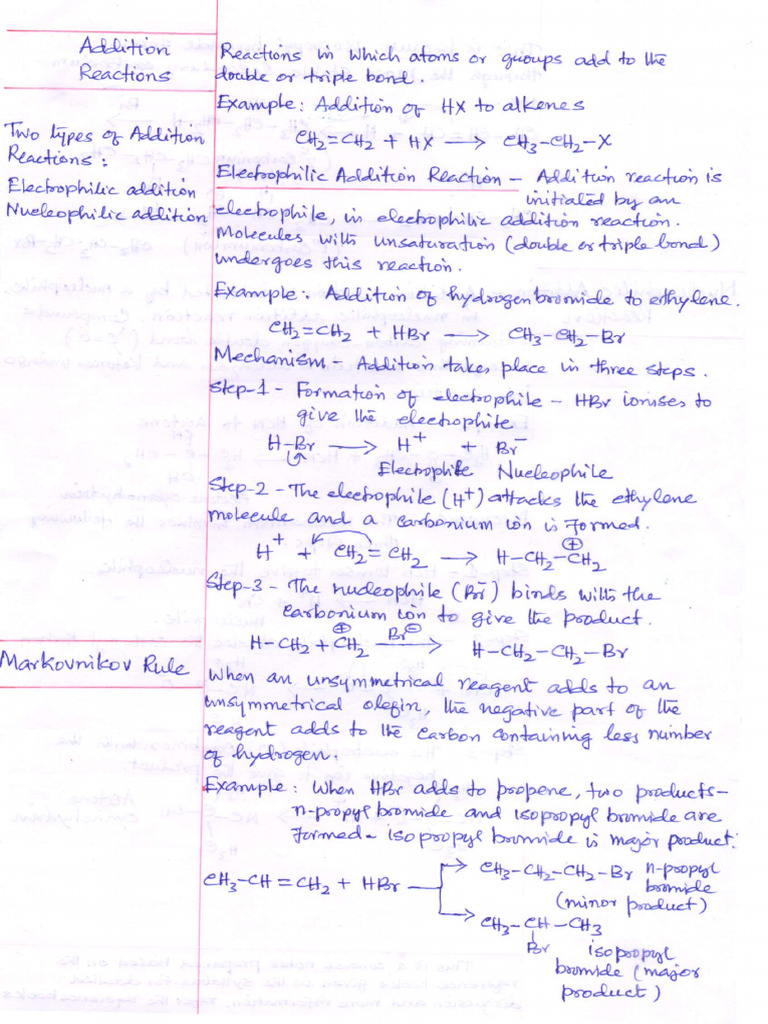 Addition
Reactions
Reactions in which atoms or groups add to the
double or triple bond.
Example: Addition of HX to alkenes
CH2=CH2 + HX → CH3-CH2-X
Two types of Addition
Reactions:
Electrophilic addition
Nucleophilic addition
Electrophilic Addition Reaction - Addition reaction is
initiated by an
electrophile, in electrophilic addition reaction.
Molecules with unsaturation (double or triple bond)
undergoes this reaction.
Example: Addition of hydrogen bromide to ethylene.
CH2=CH2 + HBr → CH3-CH2-Br
Mechanism - Addition takes place in three steps.
Step-1 - Formation of electrophile - HBr ionises to
give the electrophile
H-Br → H+ + Br-
Electrophile Nucleophile
Step-2 - The electrophile (H+) attacks the ethylene
molecule and a carbonium ion is formed.
H+ + CH2=CH2 → H-CH2-CH2⊕
Step-3 - The nucleophile (Br-) binds with the
carbonium ion to give the product.
H-CH2+CH2⊕ Br⊖→ H-CH2-CH2-Br
Markovnikov Rule
When an unsymmetrical reagent adds to an
unsymmetrical olefin, the negative part of the
reagent adds to the carbon containing less number
of hydrogen.
Example: When HBr adds to propene, two products-
n-propyl bromide and isopropyl bromide are
formed - isopropyl bromide is major product.
CH3-CH=CH2 + HBr
→ CH3-CH2-CH2-Br n-propyl
bromide
(minor product)
→ CH3-CH-CH3
Br isopropyl
bromide (major
product)